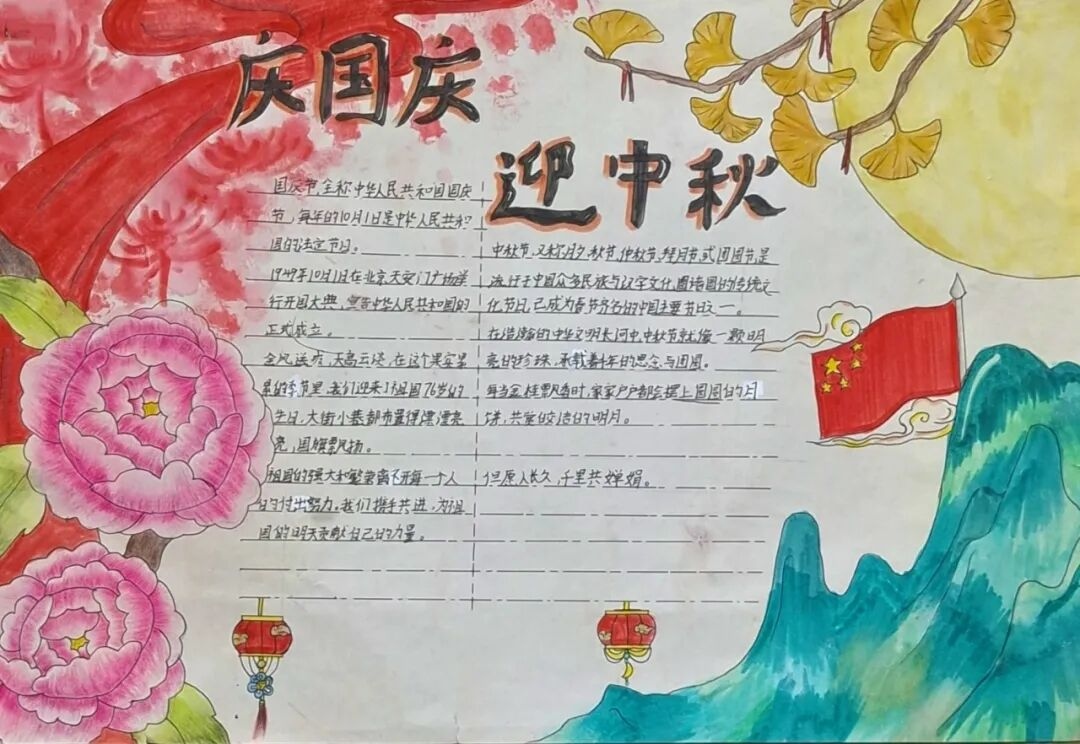 庆国庆
迎中秋
国庆节,全称中华人民共和国国庆
节,每年的10月1日是中华人民共和
国的法定节日。
1949年10月1日在北京天安门广场举
行开国大典,宣告中华人民共和国的
正式成立。
金风送爽,天高云淡,在这个果实累
累的季节里,我们迎来了祖国76岁的
生日,大街小巷都布置得漂漂亮
亮,国旗飘扬。
祖国的强大和繁荣离不开每一个人
的付出努力。我们携手共进,为祖
国的明天贡献自己的力量。
中秋节,又称月夕,秋节,仲秋节,拜月节,或团圆节,是
流行于中国众多民族与汉字文化圈诸国的传统文
化节日,已成为春节齐名的中国主要节日之一。
在浩瀚的中华文明长河中,中秋节就像一颗明
亮的珍珠,承载着千年的思念与团圆。
每当金桂飘香时,家家户户都会摆上圆圆的月
饼,共赏皎洁的明月。
但愿人长久,千里共婵娟。